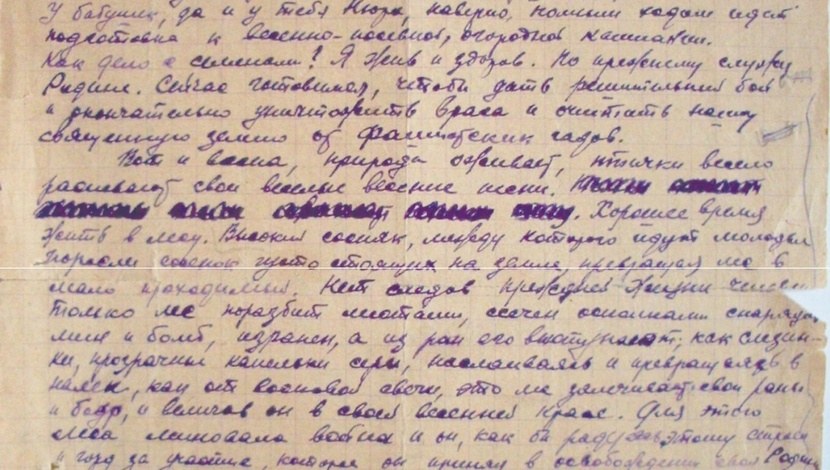 У бабушки, да и у тебя Нюра, наверно, полным ходом идет
подготовка к весенно-посевной, огородной кампании.
Как дело с семенами? Я жив и здоров. По прежнему служу
Родине. Сейчас готовимся, чтобы дать решительный бой
и окончательно уничтожить врага и очистить нашу
священную землю от фашистских гадов.
Вот и весна, природа оживает, птички весело
распевают свои веселые весение песни.
Хорошее время
жить в лесу. Высокий сосняк, между которого идут молодые
поросли сосенок густо стоящих на земле, превращая лес в
мало проходимый. Нет следов прежней жизни
только лес поразбит местами, иссечен осколками снарядов
мин и бомб, изранен, а из ран его выступают, как слезин-
ки, прозрачные капельки серы, наслаиваясь и превращаясь в
налек, как от восковой свечи, это лес залечивает свои раны
и бодр, и величав он в своей весенней красе. Для этого
леса миновала война и он, как бы радуясь этому
и горд за участие, которое он принял в освобождении своей Родины